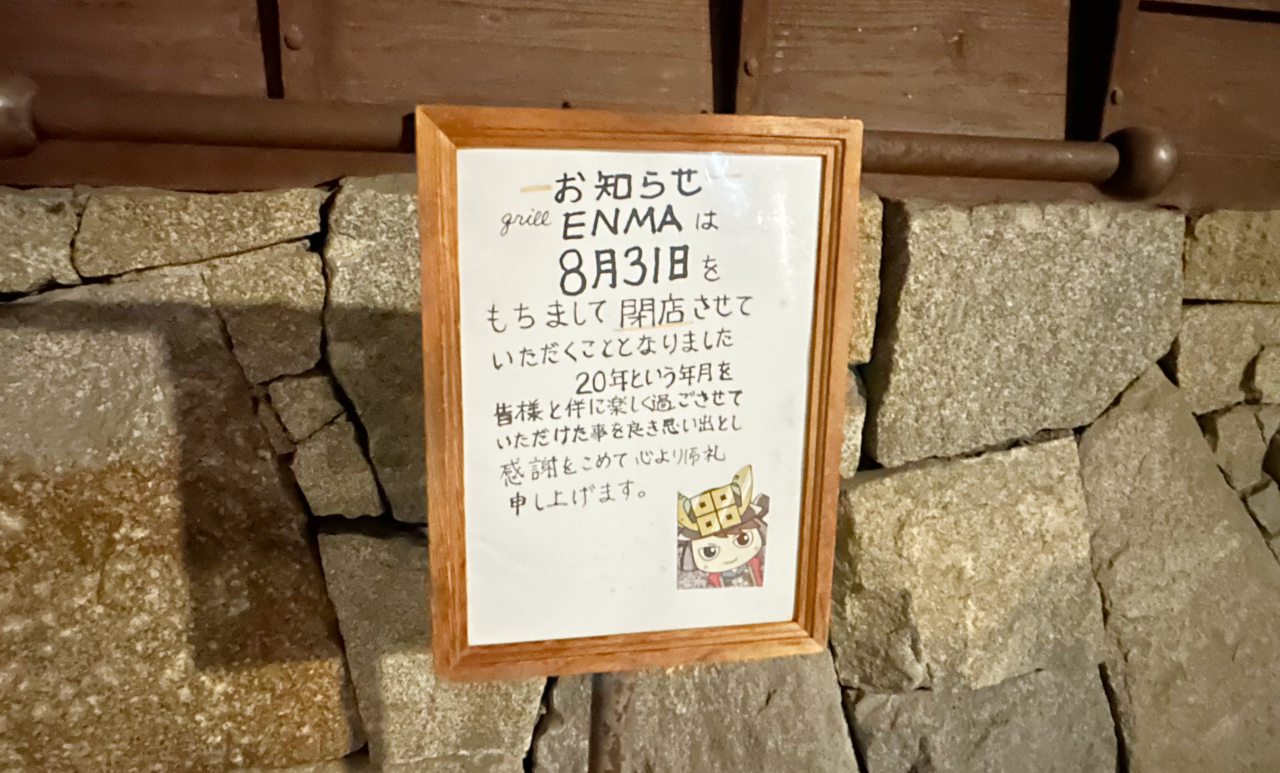 お知らせ
grill ENMA は
8月31日を
もちまして閉店させて
いただくこととなりました
20年という年月を
皆様と伴に楽しく過ごさせて
いただけた事を良き思い出とし
感謝をこめて心より御礼
申し上げます。